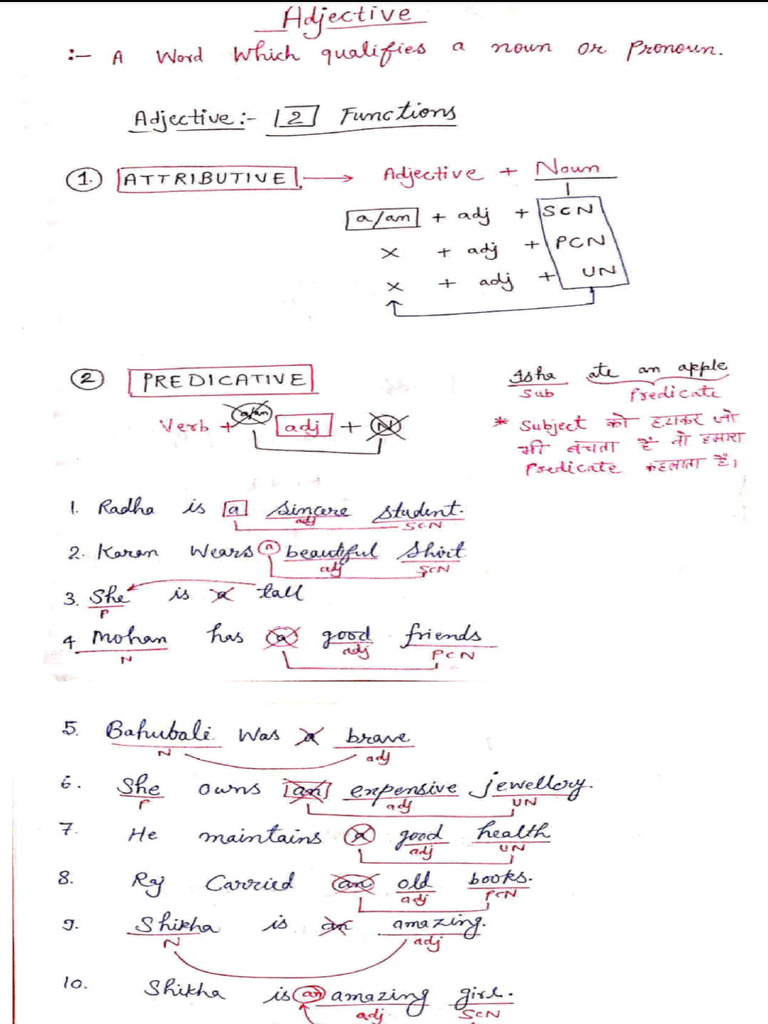 Adjective
:- A Word Which qualifies a noun or Pronoun.
Adjective:- 2 Functions
1. ATTRIBUTIVE → Adjective + Noun
a/an + adj + SCN
x + adj + PCN
x + adj + UN
2 PREDICATIVE
Verb + a/an adj + N
Isha ate an apple
Sub Predicate
* Subject को हटाकर जो
भी बचता हैं वो हमारा
Predicate कहलाता हैं।
1. Radha is a sincere student.
adj SCN
2. Karan Wears a beautiful Shirt
adj SCN
3. She is a tall
P
4 Mohan has a good friends
N adj PCN
5. Bahubali was a brave
N adj
6. She owns an expensive jewellery.
P adj UN
7. He maintains a good health
adj UN
8. Raj Carried an old books.
adj PCN
9. Shikha is an amazing.
N adj
10. Shikha is an amazing girl.
adj SCN